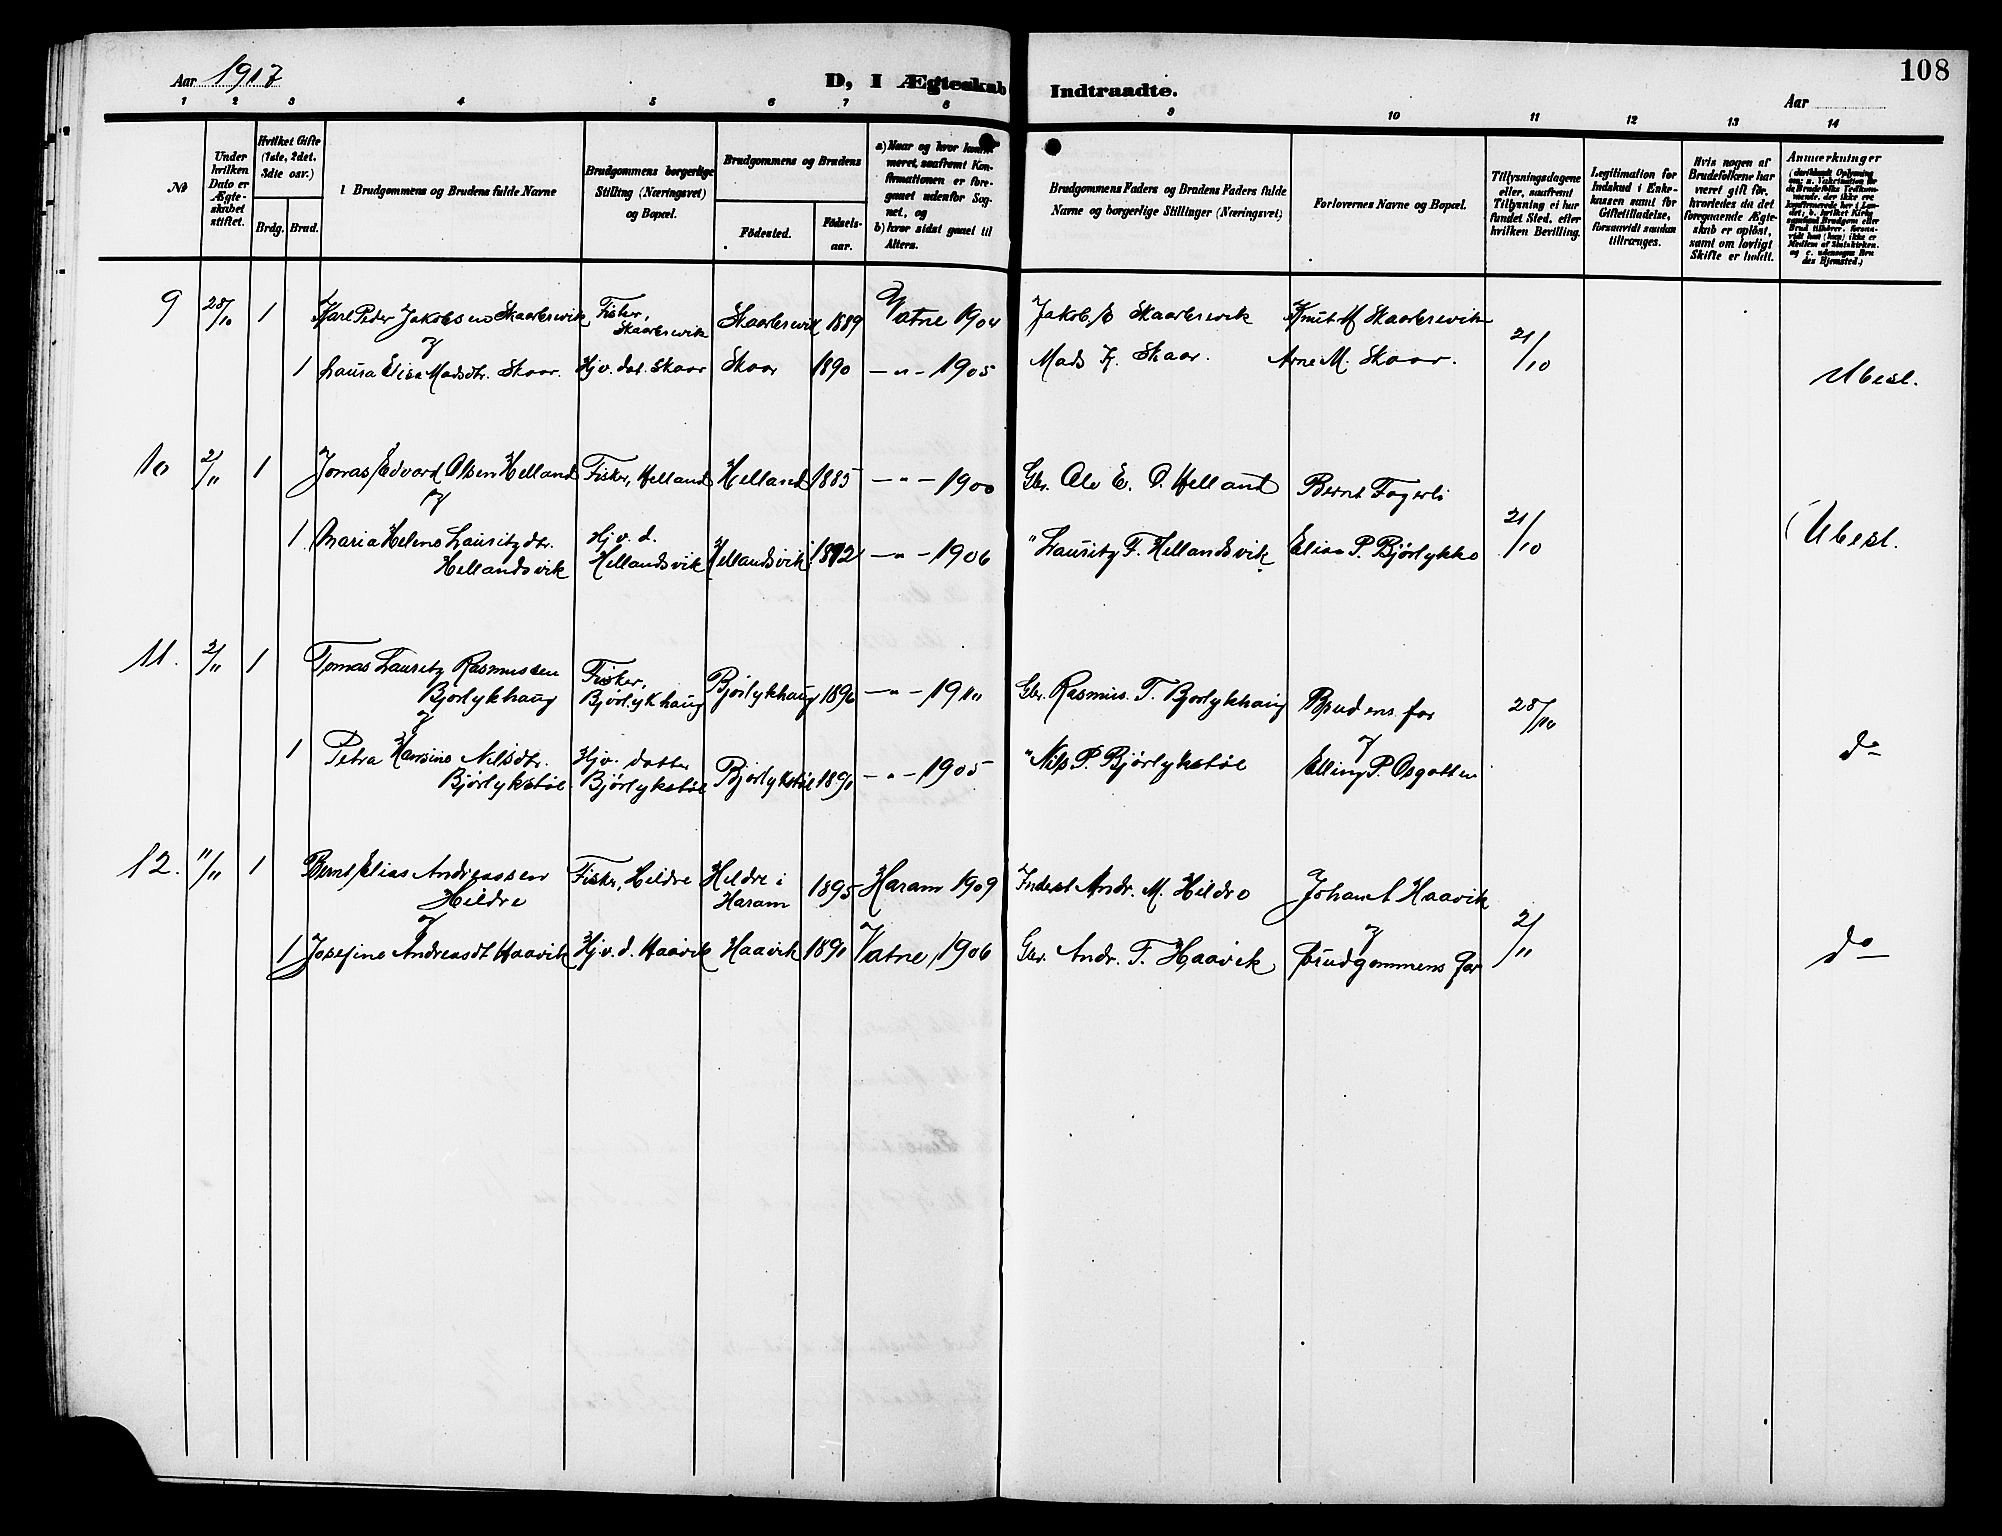 108
Aar 1917
D, I Ægteskab Indtraadte.
Aar
1 2 3 4 5 6 7 8 9 10 11 12 13 14
№
Under hvilken Dato er Ægteskabet stiftet.
Hvilket Gifte (1ste, 2det, 3die osv.)
Brdg. Brud.
Brudgommens og Brudens fulde Navne
Brudgommens borgerlige Stilling (Næringsvei) og Bopæl.
Brudgommens og Brudens
Födested.
Födsels-aar.
a) Naar og hvor konfirmeret, saafremt Konfirmationen er foregaaet udenfor Sognet, og
b) hvor sidst gaaet til Alters.
Brudgommens Faders og Brudens Faders fulde Navne og borgerlige Stillinger (Næringsvei)
Forlovernes Navne og Bopæl.
Tillysningsdagene eller, saafremt Tillysning ei har fundet Sted, efter hvilken Bevilling.
Legitimation for Indskud i Enkekassen samt for Giftetilladelse, forsaavidt saadan tiltrænges.
Hvis nogen af Brudefolkene har været gift för, hvorledes da det foregaaende Ægteskab er oplöst, samt om lovligt Skifte er holdt.
Anmærkninger
9 28/10 1 Karl Peder Jakobsen Skaarbrevik Fisker, Skaarbrevik Skaarbrevik 1889 Vatne 1904 Jakob Skaarbrevik Knut M Skaarbrevik 21/10
og
1 Laura Elisa Madsdtr. Skaar. Hjv. dat. Skaar Skaar 1890 -"- 1905 Mads K. Skaar. Arne M. Skaar. Ubesl.
10 2/11 1 Jonas Edvard Olsen Helland Fisker, Helland Helland 1885 -"- 1900 Gbr. Ole E. O. Helland Bernt Fagerli 21/10
og
1. Maria Helene Lauritzdtr. Hellandsvik Hjv. d. Hellandsvik Hellandsvik 1892 -"- 1906 " Lauritz F. Hellandsvik Elias P. Björlykke Ubesl.
11. 2/11 1 Tomas Lauritz Rasmussen Björlykhaug Fisker, Björlykhaug Björlykhaug 1896 -"- 1910 Gbr. Rasmus T. Björlykhaug Brudens far 28/10
og og
1 Petra Hansine Nilsdtr. Björlykstöl Hjv. datter Björlykstöl Björlykstöl 1890 -"- 1905 " Nils P. Björlykstöl Elling P. Osgotten do
12. 11/11 1 Bernt Elias Andreassen Hildre Fisker, Hildre Hildre i Haram 1895 Haram 1909 Inderst Andr. M. Hildre Johan A Haavik 2/11
og og
1 Josefine Andreasdt Haavik Hjv. d. Haavik Haavik 1890 Vatne, 1906 Gbr. Andr. T. Haavik Brudgommens far do